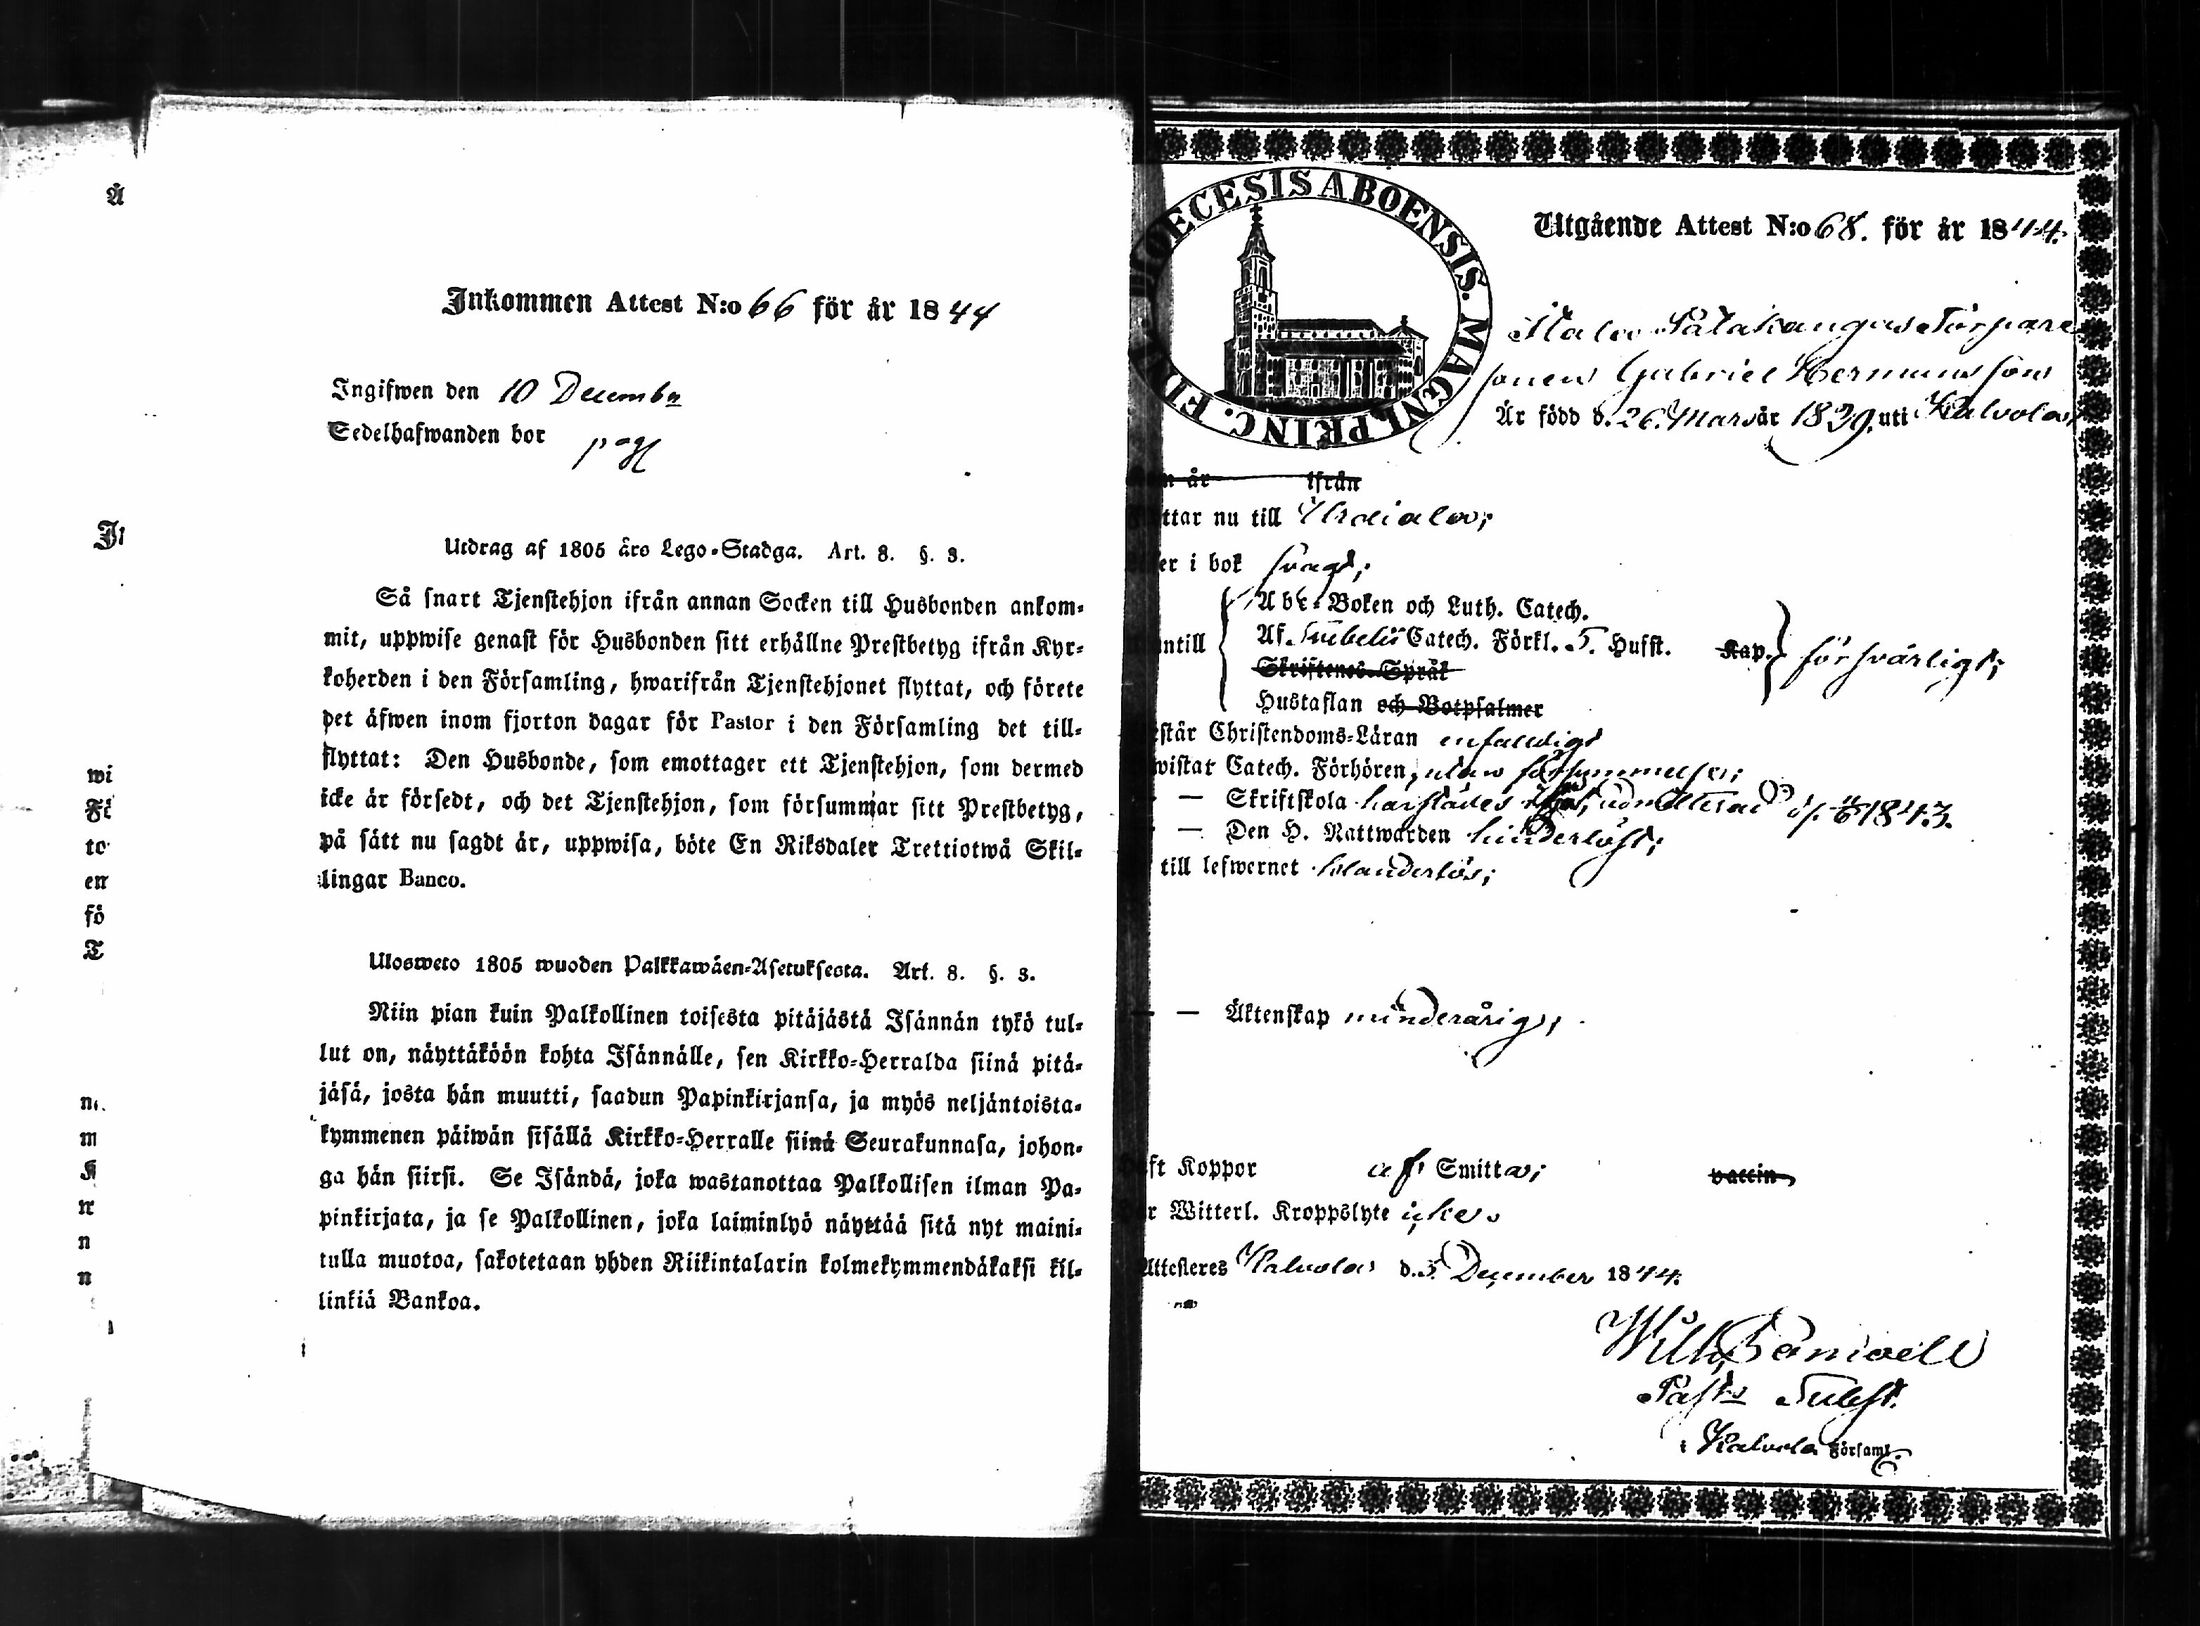 Å
Inkommen Attest N:o 66 för år 1844
Ingifwen den 10 December
Sedelhafwanden bor
Utdrag af 1805 års Lego-Stadga. Art. 8. §. 3.
Så snart Tjenstehjon ifrån annan Socken till Husbonden ankom-
mit, uppwise genast för Husbonden sitt erhållne Prestbetyg ifrån Kyr-
koherden i den Församling, hwarifrån Tjenstehjonet flyttat, och förete
det äfwen inom fjorton dagar för Pastor i den Församling det till-
flyttat: Den Husbonde, som emottager ett Tjenstehjon, som dermed
icke är försedt, och det Tjenstehjon, som försummar sitt Prestbetyg,
på sätt nu sagdt är, uppwisa, böte En Riksdaler Trettiotwå Skil-
lingar Banco.
Ulosweto 1805 wuoden Palkkawäen-Asetuksesta. Art. 8. §. 3.
Niin pian kuin Palkollinen toisesta pitäjästä Isännän tykö tul-
lut on, näyttäköön kohta Isännälle, sen Kirkko-Herralda siinä pitä-
jäsä, josta hän muutti, saadun Papinkirjansa, ja myös neljäntoista-
kymmenen päiwän sisällä Kirkko-Herralle siinä Seurakunnasa, johon-
ga hän siirsi. Se Isändä, joka wastanottaa Palkollisen ilman Pa-
pinkirjata, ja se Palkollinen, joka laiminlyö näyttää sitä nyt maini-
tulla muotoa, sakotetaan yhden Riikintalarin kolmekymmendäkaksi kil-
linkiä Bankoa.
wi
to
em
fö
T
m
K
n
n
DIOECESIS ABOENSIS. MAGNI PRINC. FINL.
Utgående Attest N:o 68. för år 1844.
Torpare
sonen Gabriel Hermansson
Är född d. 26. Mars år 1829. uti Kalvola,
n år ifrån
ttar nu till Urdiala;
er i bok svagt;
Abc-Boken och Luth. Catech.
ntill Af Svebelii Catech. Förkl. 5. Hufst. Kap. försvarligt;
Skriftenes Språk
Hustaflan och Botpsalmer
står Christendoms-Läran enfaldigt
wistat Catech. Förhören, utan försummelse;
— Skriftskola härstädes admitterad 1843.
— Den H. Nattwarden hinderlöst;
till lefwernet klanderlös;
— — Äktenskap minderårig;
ft Koppor af Smitta; vaccin
r Witterl. Kroppslyte icke.
Attesteres Kalvola d. 5. December 1844.
Wilh.
Past: Subst.
i Kalvola Församl.